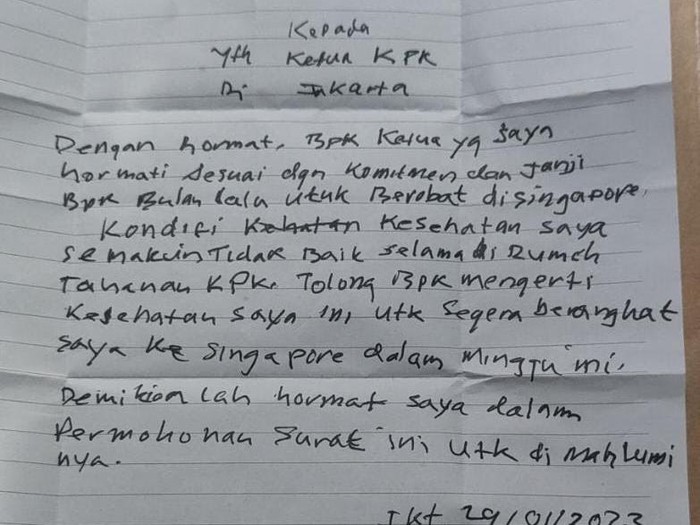 Kepada
Yth Ketua KPK
Di Jakarta
Dengan hormat, BPK Ketua yg saya
hormati sesuai dgn Komitmen dan Janji
BPK Bulan lalu utuk Berobat disingapore.
Kondisi Kesehatan saya
semakin Tidak Baik selama di Rumeh
Tahanan KPK. Tolong BPK mengerti
Kesehatan saya ini utk segera berangkat
saya Ke Singapore dalam minggu ini.
Demikian lah hormat saya dalam
Permohonan Surat ini utk di mahlumi
nya.
Jkt 29/01/2023